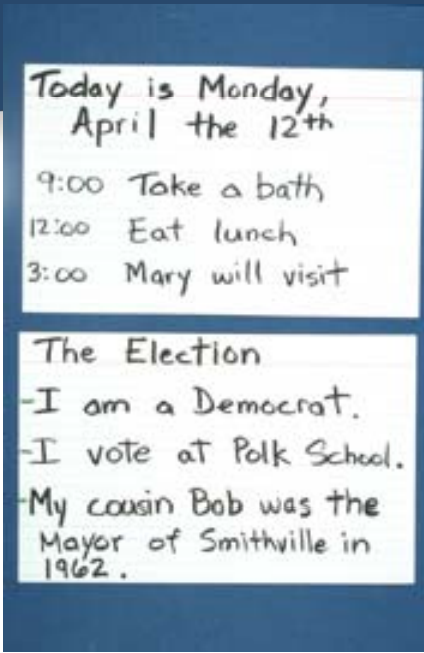 Today is Monday,
April the 12th
9:00 Take a bath
12:00 Eat lunch
3:00 Mary will visit
The Election
-I am a Democrat.
-I vote at Polk School.
-My cousin Bob was the
Mayor of Smithville in
1962.